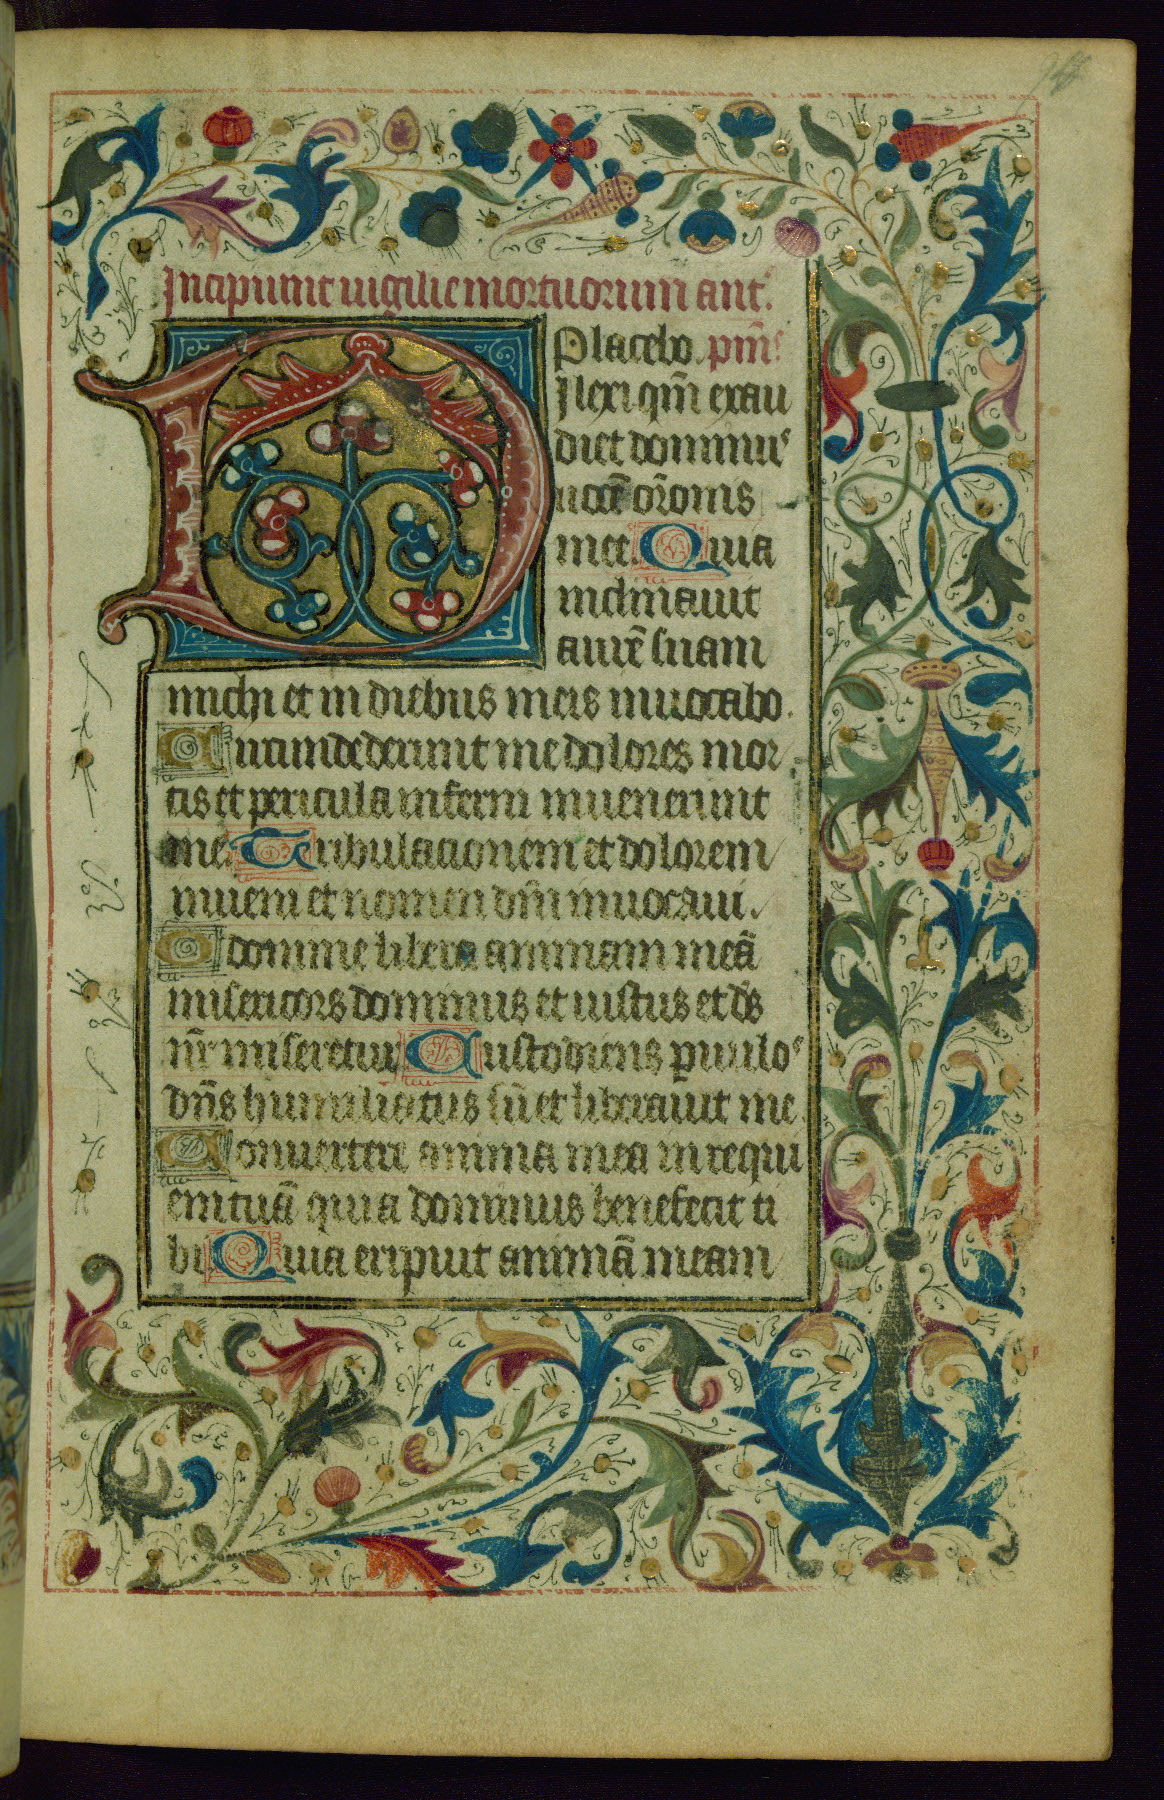 Incipiunt uigilie mortuorum ant̾.
Placebo. pm̄s̾
Dilexi qm̄ exau
diet dominus
uocē or̄onis
mee. Quia
inclinauit
aurē suam
michi et in diebus meis inuocabo.
Circumdederunt me dolores mor
tis et pericula inferni inuenerunt
me. Tribulacionem et dolorem
inueni et nomen dn̄i inuocaui.
O domine libera animam meā
misericors dominus et iustus et ds̄
nr̄ miseretur Custodiens p̱uulos
dn̄s humiliatus sū et liberauit me.
Conuertere anima mea in requi
em tuā quia dominus benefecit ti
bi Quia eripuit animā meam